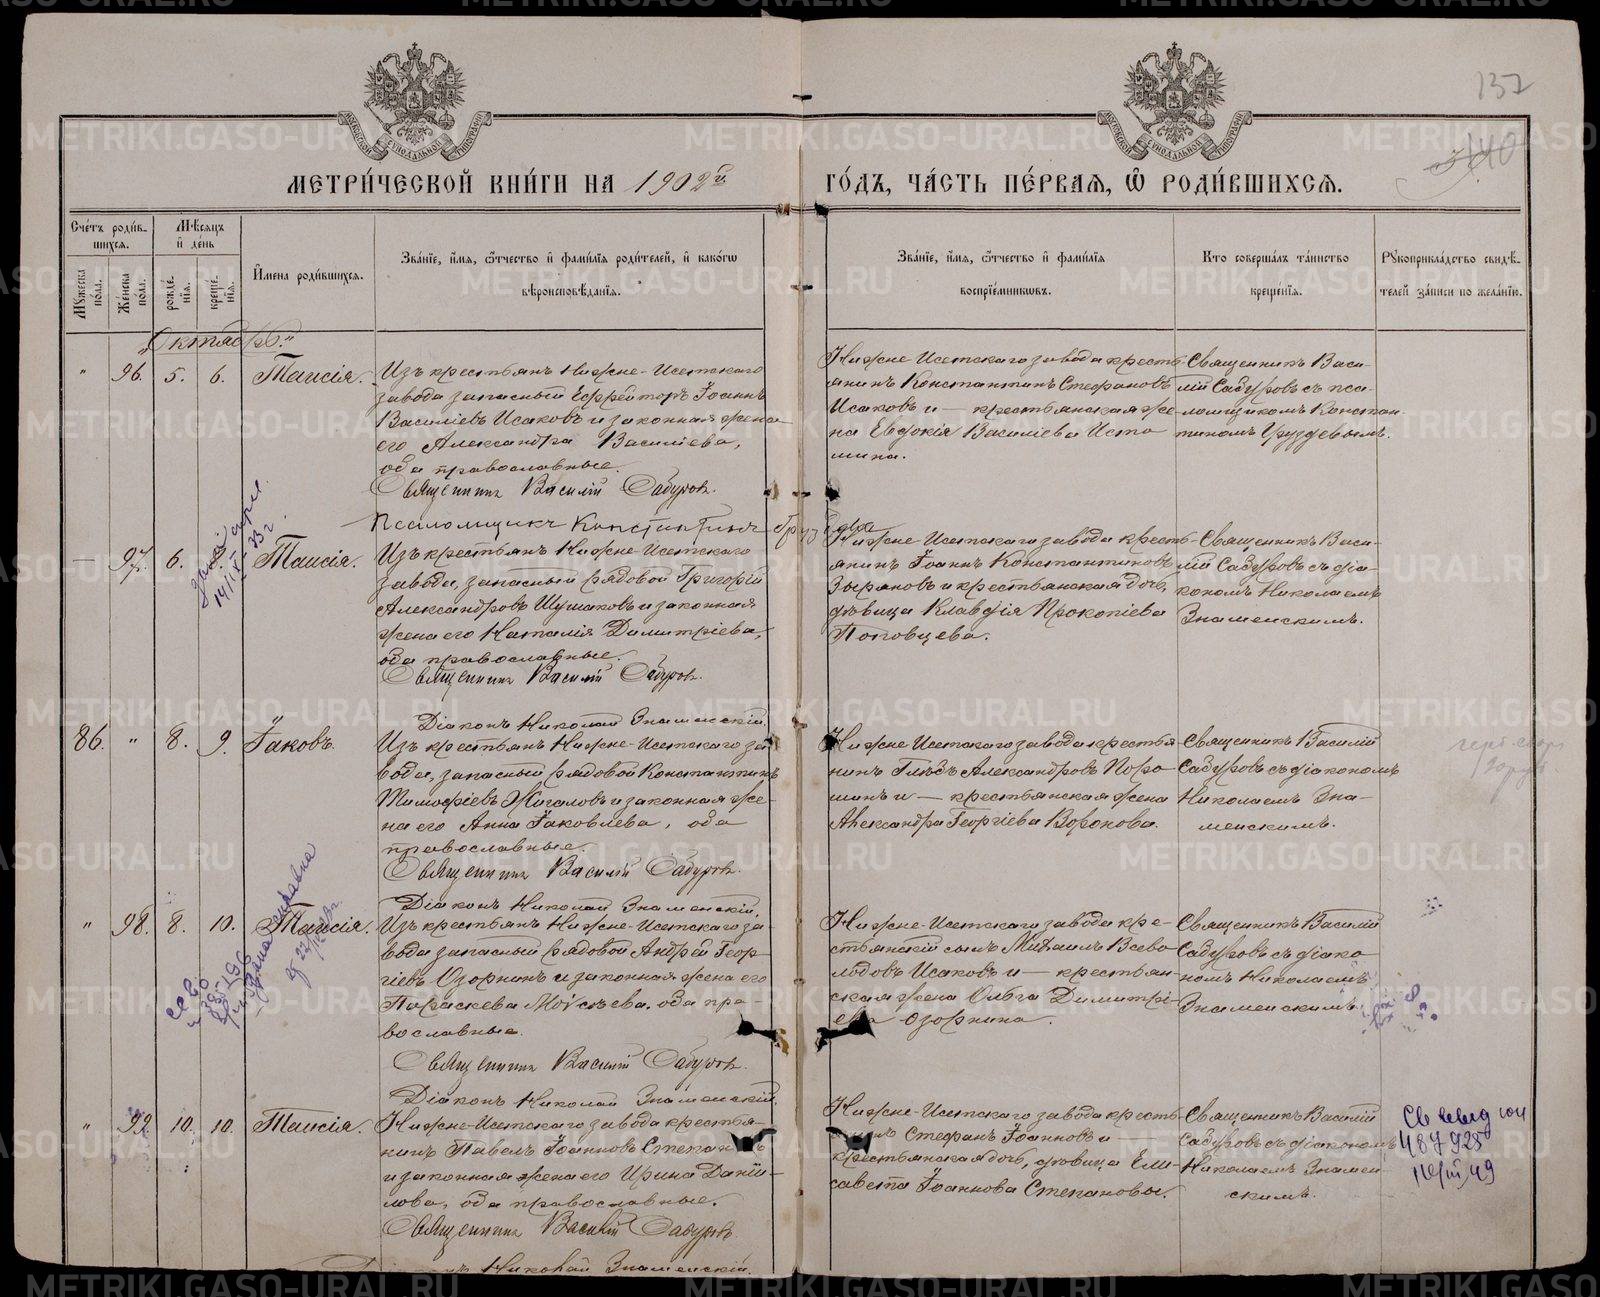 137
140
МЕТРИ́ЧЕСКОЙ КНИ́ГИ НА 1902й ГО́ДЪ, ЧА́СТЬ ПЕ́РВАЯ, Ѿ РОДИ́ВШИХСЯ.
Сче́тъ роди́в-
шихся.
Мѣ́сяцъ
и де́нь
Му́жеска по́ла.
Же́нска по́ла.
рожде́-
нїя.
креще́-
нїя.
И́мена роди́вшихся.
Зва́нїе, и́мя, о́тчество и фами́лїя роди́телей, и како́гѡ
вѣроисповѣ́данїя.
Зва́нїе, и́мя, о́тчество и фами́лїя
воспрїе́мниковъ.
Кто соверша́лъ та́инство
креще́нїя.
Рукоприкла́дство свидѣ́-
телей за́писи по жела́нїю.
„Октябрь“
" 96. 5. 6. Таисія.
Изъ крестьянъ Нижне-Исетскаго
завода запасный Ефрейторъ Іоаннъ
Василіевъ Исаковъ и законная жена
его Александра Василіева,
оба православные.
Священникъ Василій Сабуровъ.
Псаломщикъ Константинъ Груздевъ
Нижне Исетскаго завода кресть-
янинъ Константинъ Стефановъ
Исаковъ и — крестьянская же-
на Евдокія Василіева Исто
мина.
Священникъ Васи-
лій Сабуровъ съ пса-
ломщикомъ Констан
тиномъ Груздевымъ.
— 97. 6. 6. Таисія.
14/IV-33 г.
Изъ крестьянъ Нижне-Исетскаго
завода, запасный рядовой Григорій
Александровъ Шушаковъ и законная
жена его Наталія Димитріева,
оба православные.
Священникъ Василій Сабуровъ.
Діаконъ Николай Знаменскій.
Нижне Исетскаго завода кресть-
янинъ Іоаннъ Константиновъ
Зыряновъ и крестьянская дочь,
дѣвица Клавдія Прокопіева
Поповцева.
Священникъ Васи-
лій Сабуровъ съ діа-
кономъ Николаемъ
Знаменскимъ.
86. " 8. 9. Іаковъ.
Изъ крестьянъ Нижне-Исетскаго за
вода, запасный рядовой Константинъ
Тимофіевъ Жигаловъ и законная же-
на его Анна Іаковлева, оба
православные.
Священникъ Василій Сабуровъ.
Діаконъ Николай Знаменскій.
Нижне Исетскаго завода крестья
нинъ Глѣбъ Александровъ Поро
шинъ и — крестьянская жена
Александра Георгіева Воронова.
Священникъ Василій
Сабуровъ съ діакономъ
Николаемъ Зна-
менскимъ.
" 98. 8. 10. Таисія.
Изъ крестьянъ Нижне-Исетскаго за-
вода запасный рядовой Андрей Геор-
гіевъ Озорнинъ и законная жена его
Параскева Моісѣева, оба пра-
вославные.
Священникъ Василій Сабуровъ.
Діаконъ Николай Знаменскій.
Нижне-Исетскаго завода кре-
стьянскій сынъ Михаилъ Всево-
лодовъ Исаковъ и — крестьян-
ская жена Ольга Димитрі-
ева Озорнина.
Священникъ Василій
Сабуровъ съ діако-
номъ Николаемъ
Знаменскимъ.
" 99. 10. 10. Таисія.
Нижне-Исетскаго завода крестья-
нинъ Павелъ Іоанновъ Степановъ
и законная жена его Ирина Даніи-
лова, оба православные.
Священникъ Василій Сабуровъ.
Діаконъ Николай Знаменскій.
Нижне-Исетскаго завода кресть-
янинъ Стефанъ Іоанновъ и
крестьянская дочь, дѣвица Ели-
савета Іоаннова Степановы.
Священникъ Василій
Сабуровъ съ діакономъ
Николаемъ Знамен-
скимъ.
487925
METRIKI.GASO-URAL.RU